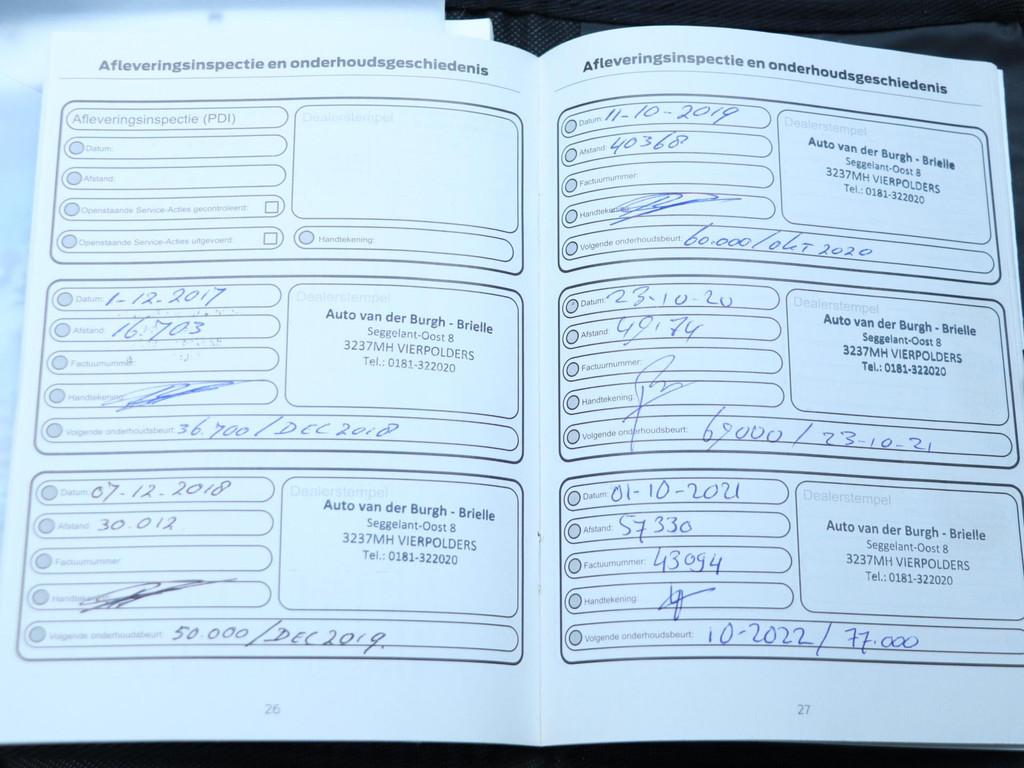 Afleveringsinspectie en onderhoudsgeschiedenis
Afleveringsinspectie (PDI)
Datum:
Afstand:
Openstaande Service-Acties gecontroleerd:
Openstaande Service-Acties uitgevoerd:
Dealerstempel
Handtekening:
Datum: 1-12-2017
Afstand: 16.703
Factuurnummer:
Handtekening:
Volgende onderhoudsbeurt: 36.700 / DEC 2018
Dealerstempel
Auto van der Burgh - Brielle
Seggelant-Oost 8
3237MH VIERPOLDERS
Tel.: 0181-322020
Datum: 07-12-2018
Afstand: 30.012
Factuurnummer:
Handtekening:
Volgende onderhoudsbeurt: 50.000 / DEC 2019.
Dealerstempel
Auto van der Burgh - Brielle
Seggelant-Oost 8
3237MH VIERPOLDERS
Tel.: 0181-322020
26
Afleveringsinspectie en onderhoudsgeschiedenis
Datum: 11-10-2019
Afstand: 40368
Factuurnummer:
Handtekening:
Volgende onderhoudsbeurt: 60.000 / OKT 2020
Dealerstempel
Auto van der Burgh - Brielle
Seggelant-Oost 8
3237MH VIERPOLDERS
Tel.: 0181-322020
Datum: 23-10-20
Afstand: 49174
Factuurnummer:
Handtekening:
Volgende onderhoudsbeurt: 69000 / 23-10-21
Dealerstempel
Auto van der Burgh - Brielle
Seggelant-Oost 8
3237MH VIERPOLDERS
Tel.: 0181-322020
Datum: 01-10-2021
Afstand: 57330
Factuurnummer: 43094
Handtekening:
Volgende onderhoudsbeurt: 10-2022 / 77.000
Dealerstempel
Auto van der Burgh - Brielle
Seggelant-Oost 8
3237MH VIERPOLDERS
Tel.: 0181-322020
27